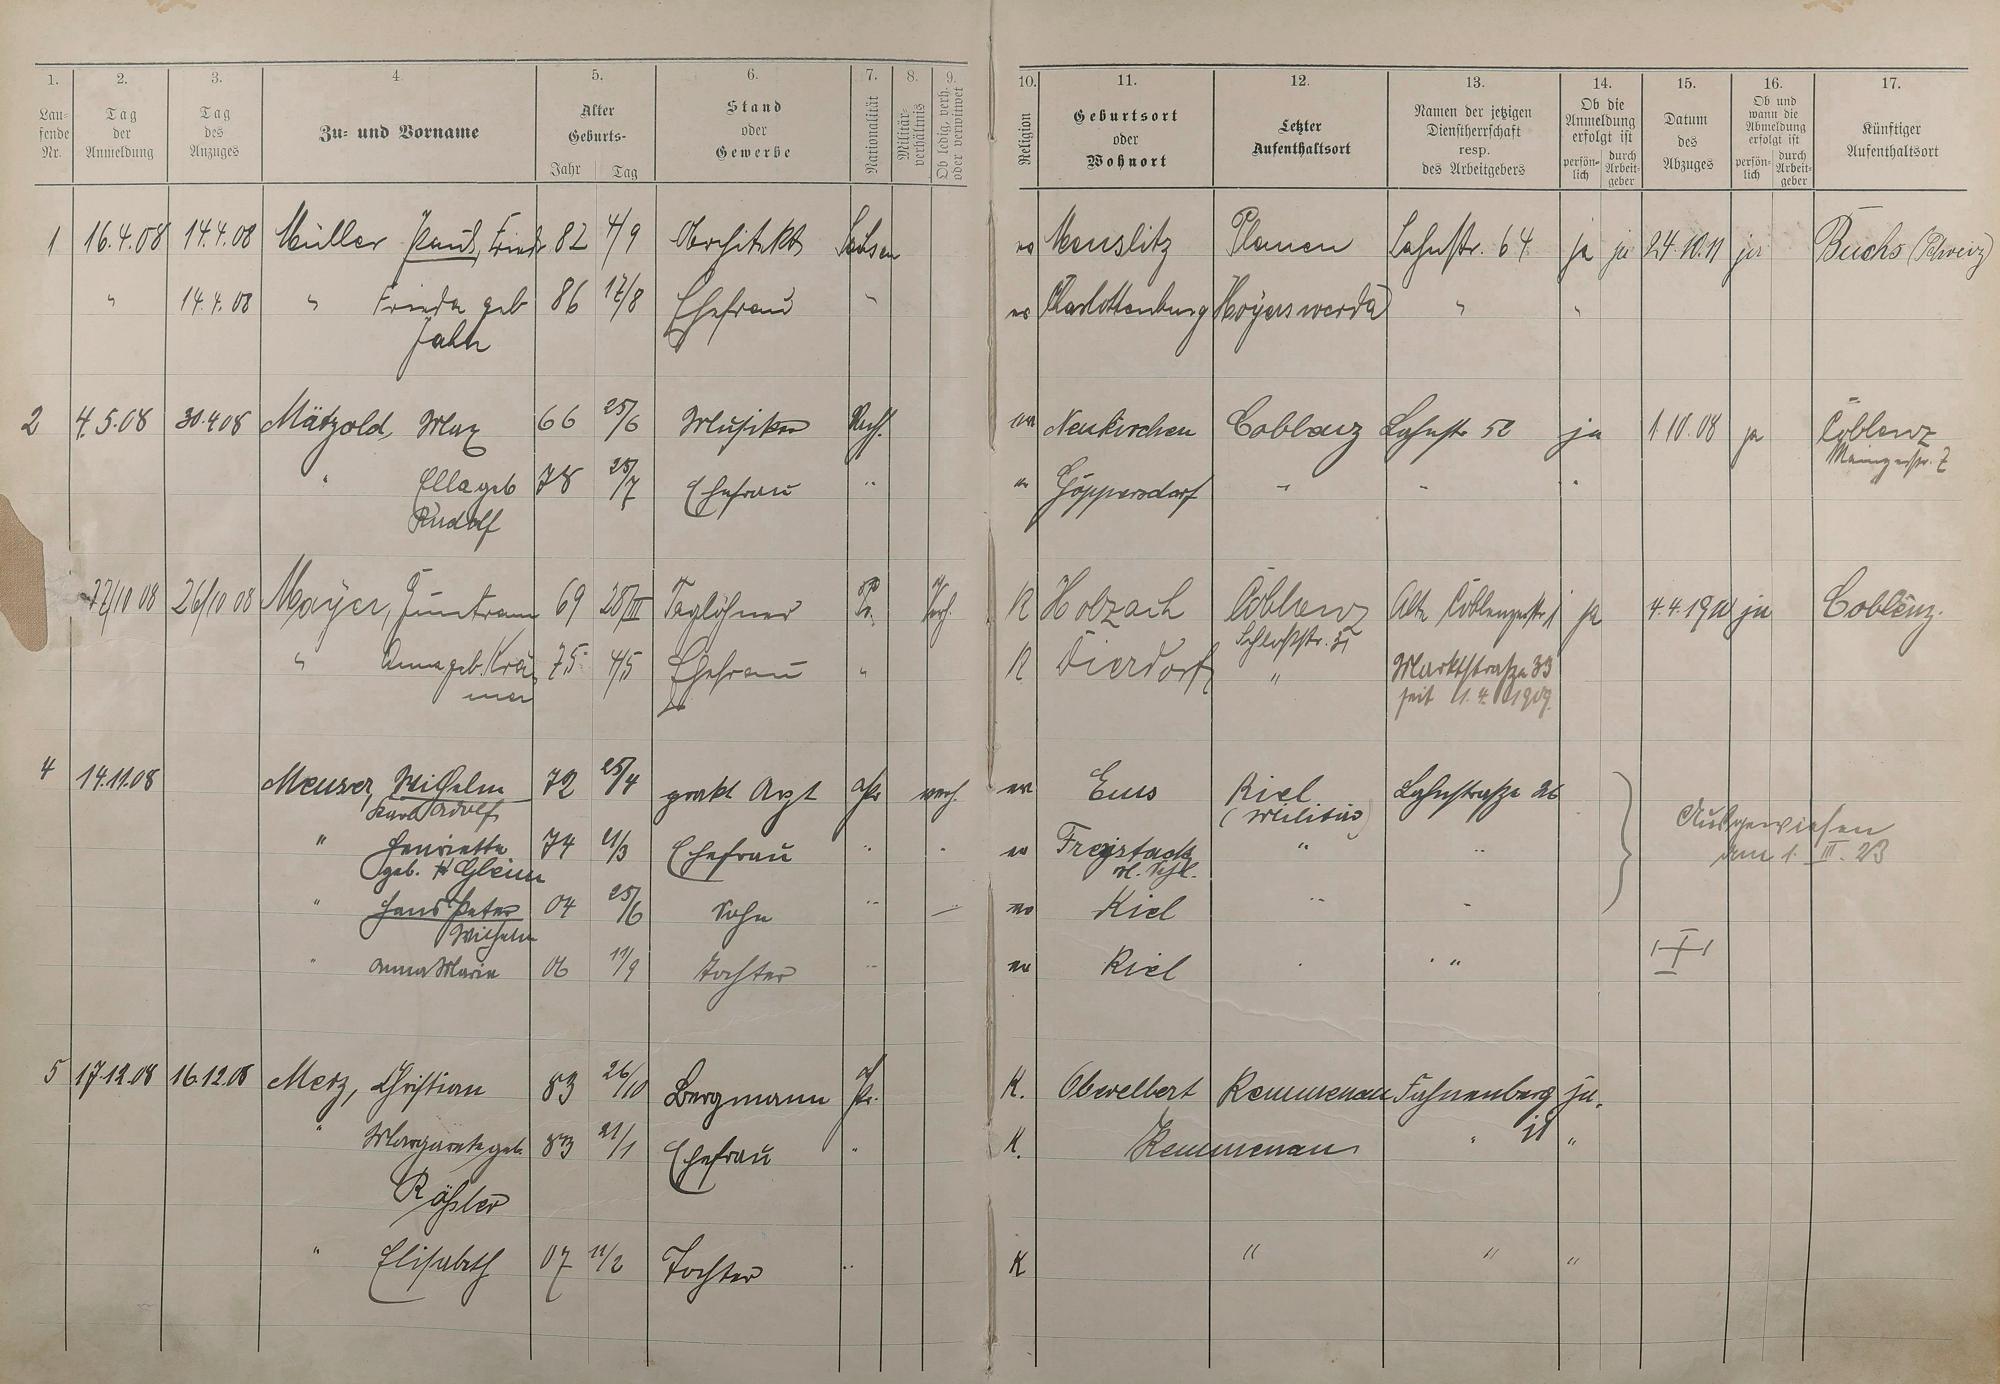 1. 2. 3. 4. 5. 6. 7. 8. 9. 10. 11. 12. 13. 14. 15. 16. 17.
Laufende Nr. Tag der Anmeldung Tag des Anzuges Zu- und Vorname Alter Geburts- Jahr Tag Stand oder Gewerbe Nationalität Militärverhältnis Ob ledig, verh. oder verwitwet Religion Geburtsort oder Wohnort Letzter Aufenthaltsort Namen der jetzigen Dienstherrschaft resp. des Arbeitgebers Ob die Anmeldung erfolgt ist persönlich durch Arbeitgeber Datum des Abzuges Ob und wann die Abmeldung erfolgt ist persönlich durch Arbeitgeber Künftiger Aufenthaltsort
1 16.4.08 14.4.08 Müller Paul, Friedr 82 4/9 Architekt Sachsen ev Plauen Lahnstr. 64 ja ja 24.10.11 ja Buchs (Schweiz)
" 14.4.08 " Frieda geb 86 17/8 Ehefrau " ev Charlottenburg Hoyerswerda " "
Jahn
2 4.5.08 30.4.08 Mätzold, Max 66 25/6 Musiker ev Neukirchen Coblenz Lahnstr 52 ja 1.10.08 ja Coblenz
Mainzerstr. 7
" Ella geb 78 25/7 Ehefrau " " Göppersdorf " " "
Rudolf
27/10 08 26/10 08 Mayer, Guntram 69 28/III Taglöhner Pr. Verh. K Holzach Coblenz Alte Coblenzerstr 1 ja 4.4.1910 ja Coblenz.
Schloßstr.
" Anna geb. Krä- 75 4/5 Ehefrau " K Dierdorf " Marktstraße 33
mer seit 1.4.1909.
4 14.11.08 Meuser, Wilhelm 72 25/4 prakt Arzt Pr verh. ev Ems Kiel Lahnstraße 26
Karl Adolf (Militär)
Ausgewiesen
" Henriette 74 21/3 Ehefrau " " ev Freystadt " "
am 1. III. 23
geb. Gleim
" Hans Peter 04 25/6 Sohn " – ev Kiel " "
Wilhelm
" Anna Maria 06 11/9 Tochter " ev Kiel " "
5 17.12.08 16.12.08 Merz, Christian 83 26/10 Bergmann Pr. K. Oberelbert Kemmenau Fahnenberg ja.
" Margarete geb. 83 21/1 Ehefrau " K. Kemmenau " "
Rößler
" Elisabeth 07 11/2 Tochter " K " " "